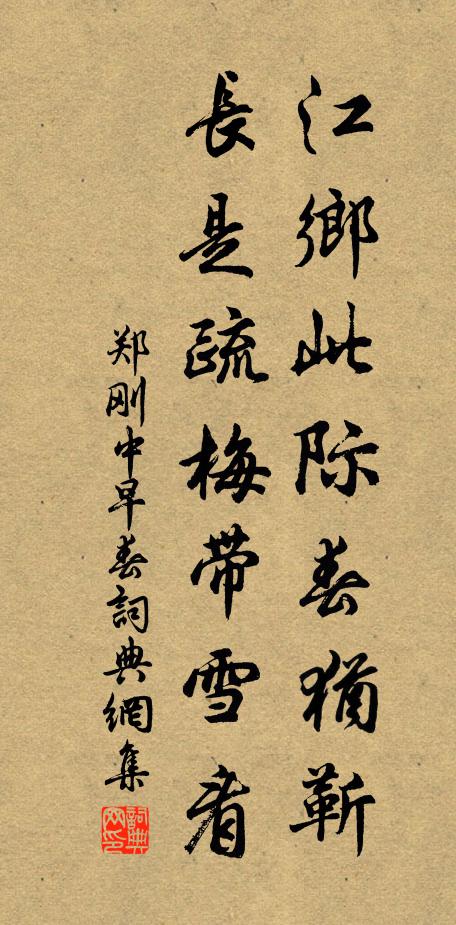 江鄉此际春猶靳
長是疏梅带雪看
郑刚中早春詞典網集
詞典网印